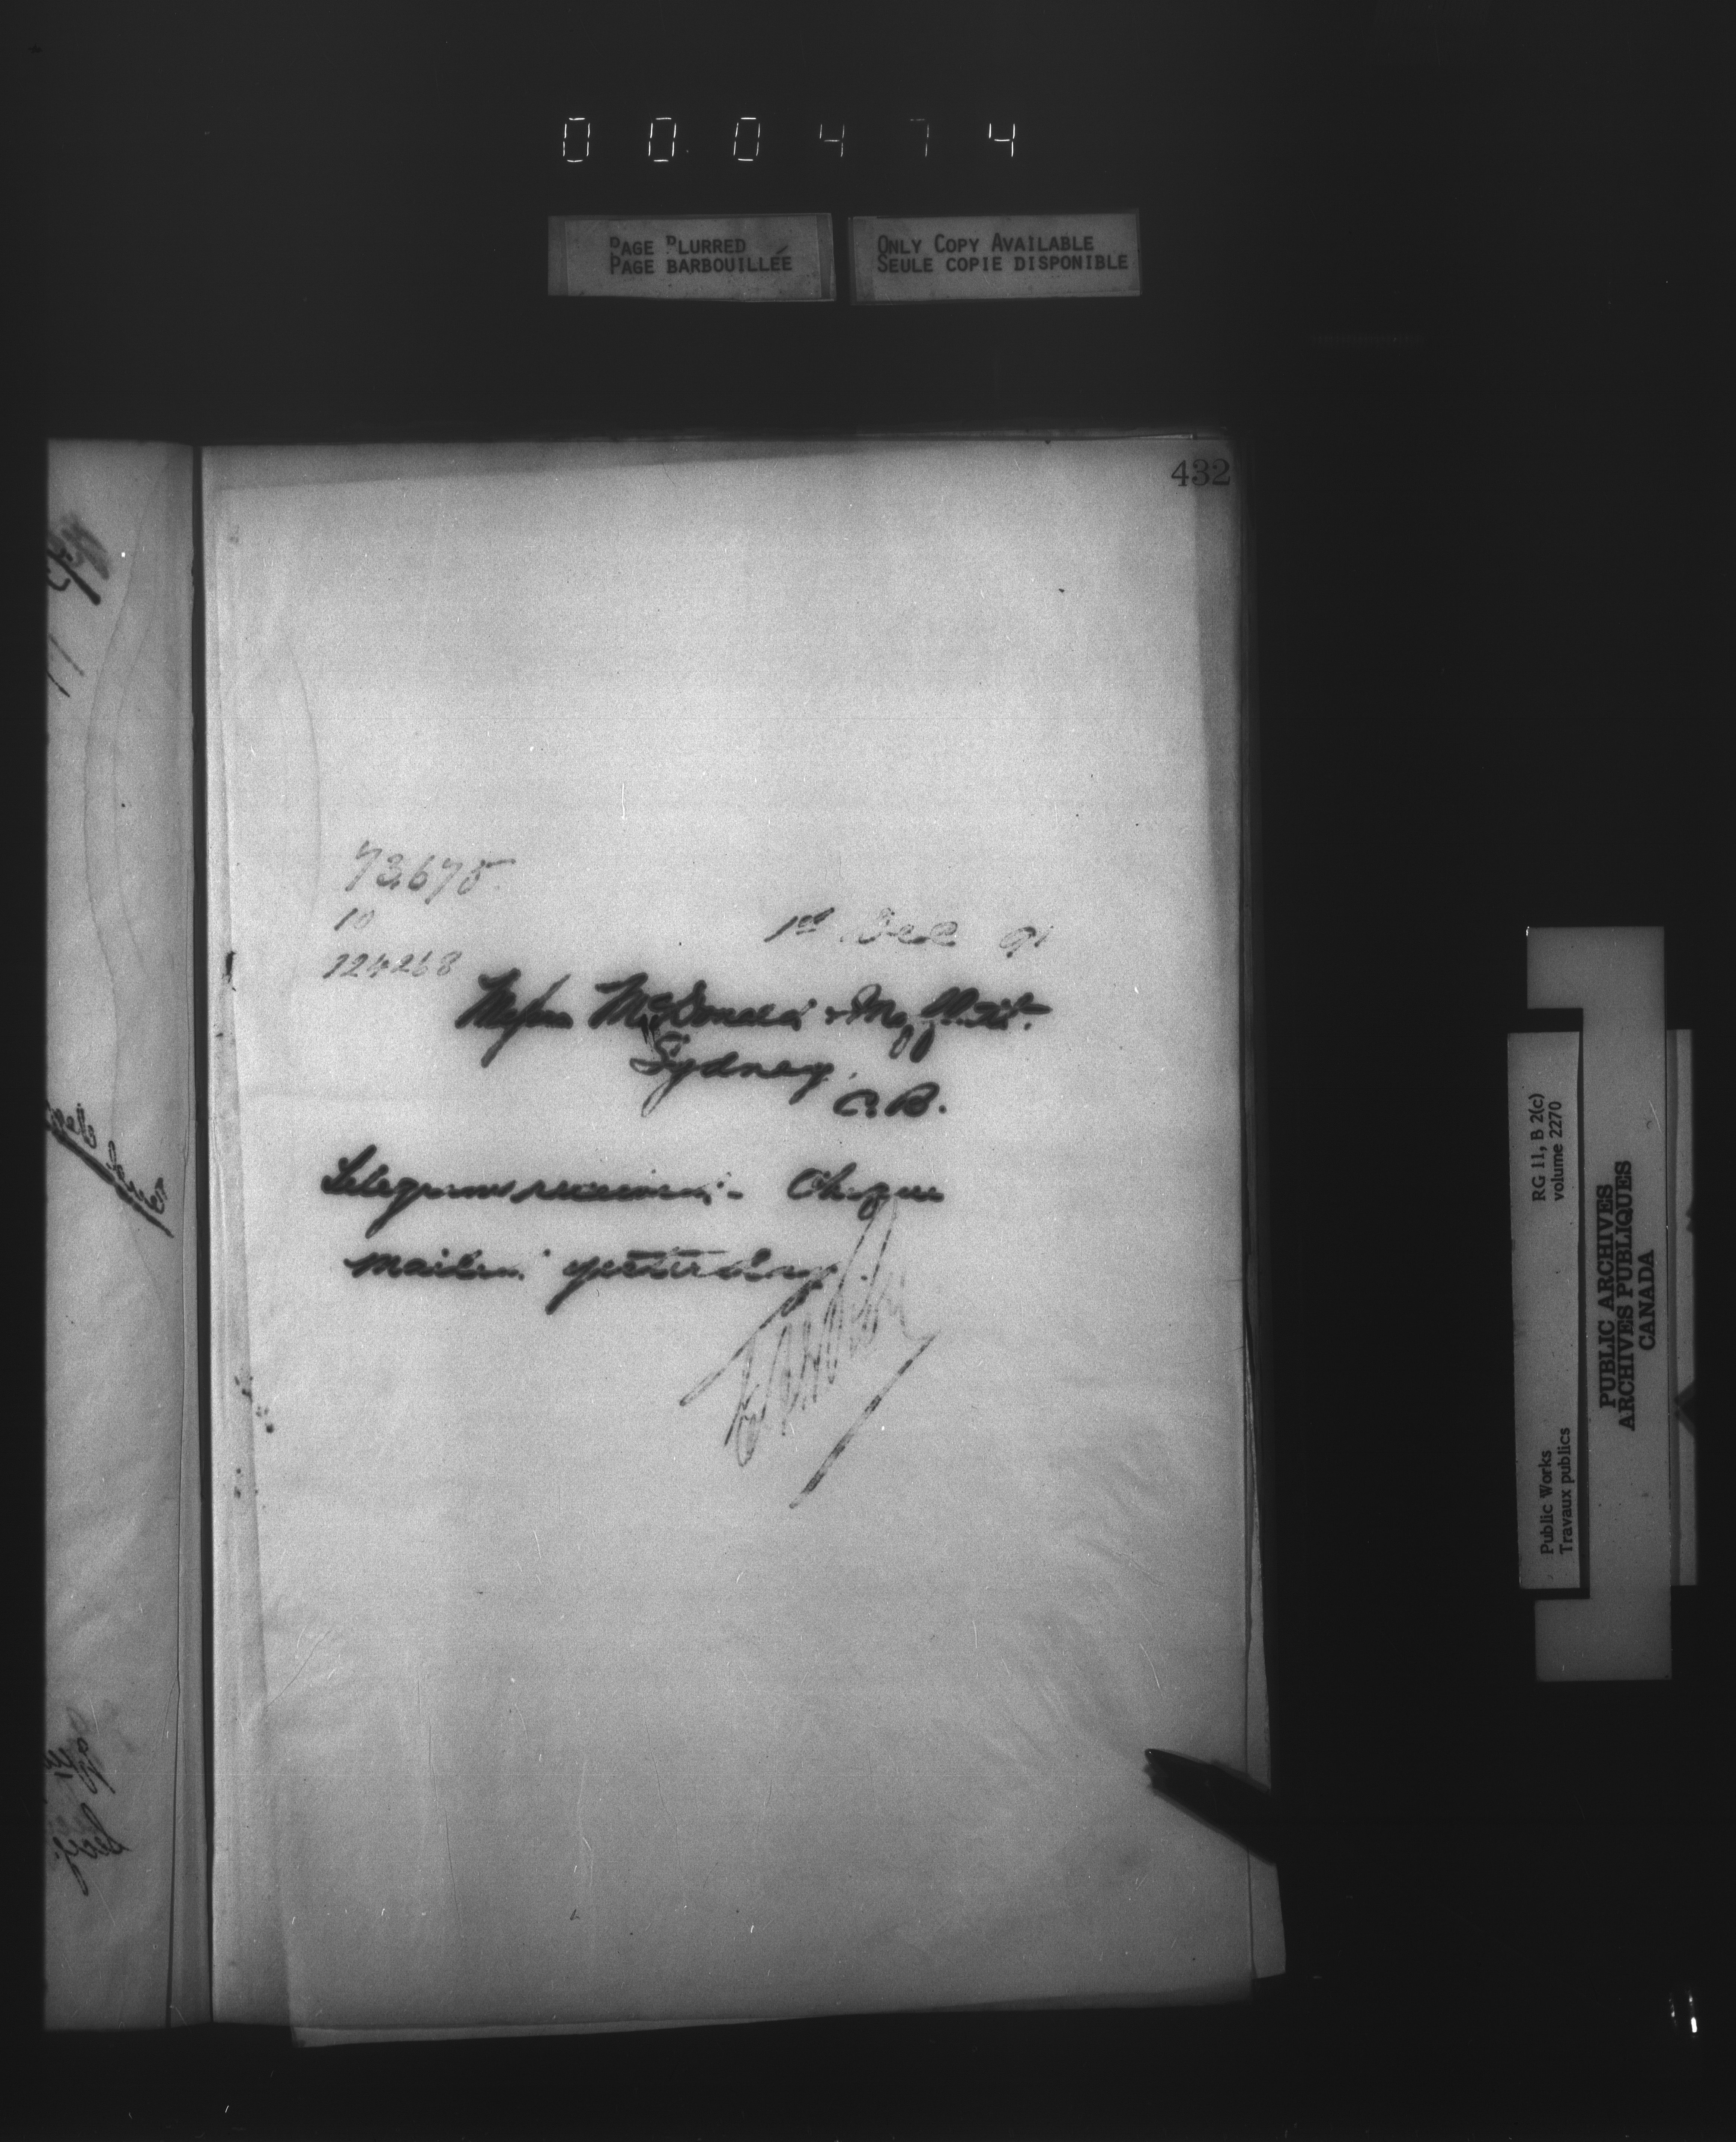 000474
PAGE BLURRED
PAGE BARBOUILLÉE
ONLY COPY AVAILABLE
SEULE COPIE DISPONIBLE
432
73675
10
124268
1st Dec 91
Messrs McDonald & Moffatt
Sydney
C.B.
Telegrams received - Cheque
mailed yesterday
RG 11, B 2(c)
volume 2270
Public Works
Travaux publics
PUBLIC ARCHIVES
ARCHIVES PUBLIQUES
CANADA